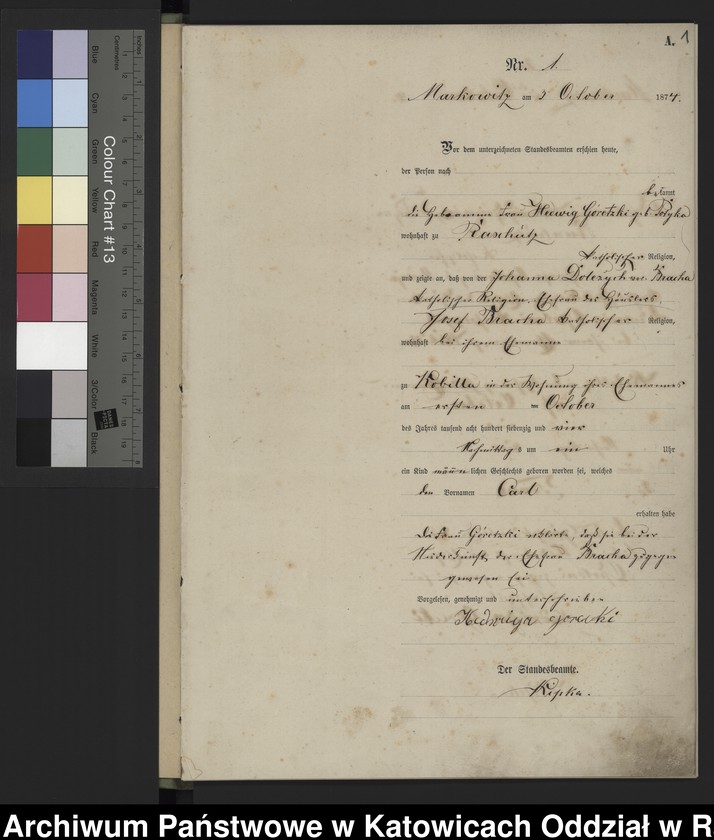 Blue
Cyan
Green
Yellow
Red
Magenta
White
3/Color
Black
Centimetres
Inches
Colour Chart #13
DANES PICTA
A. 1
Nr. 1.
Markowitz am 5 October 1874.
Vor dem unterzeichneten Standesbeamten erschien heute,
der Person nach
bekannt
die Hebeamme Frau Hedwig Goretzki geb.
wohnhaft zu Raschütz
katholischer Religion,
und zeigte an, daß von der Johanna Bracha
katholischer Religion, Ehefrau des Häuslers
Josef Bracha katholischer Religion,
wohnhaft bei ihrem Ehemanne
zu Kobilla in der Wohnung ihres Ehemannes
am ersten October
des Jahres tausend acht hundert siebenzig und vier
Nachmittags um ein Uhr
ein Kind männlichen Geschlechts geboren worden sei, welches
den Vornamen Carl
erhalten habe
Die Frau Goretzki erklärte, daß sie bei der
Niederkunft der Ehefrau Bracha zugegen
gewesen sei
Vorgelesen, genehmigt und unterschrieben
Hedwiga goretzki
Der Standesbeamte.
Kipka.
Archiwum Państwowe w Katowicach Oddział w R